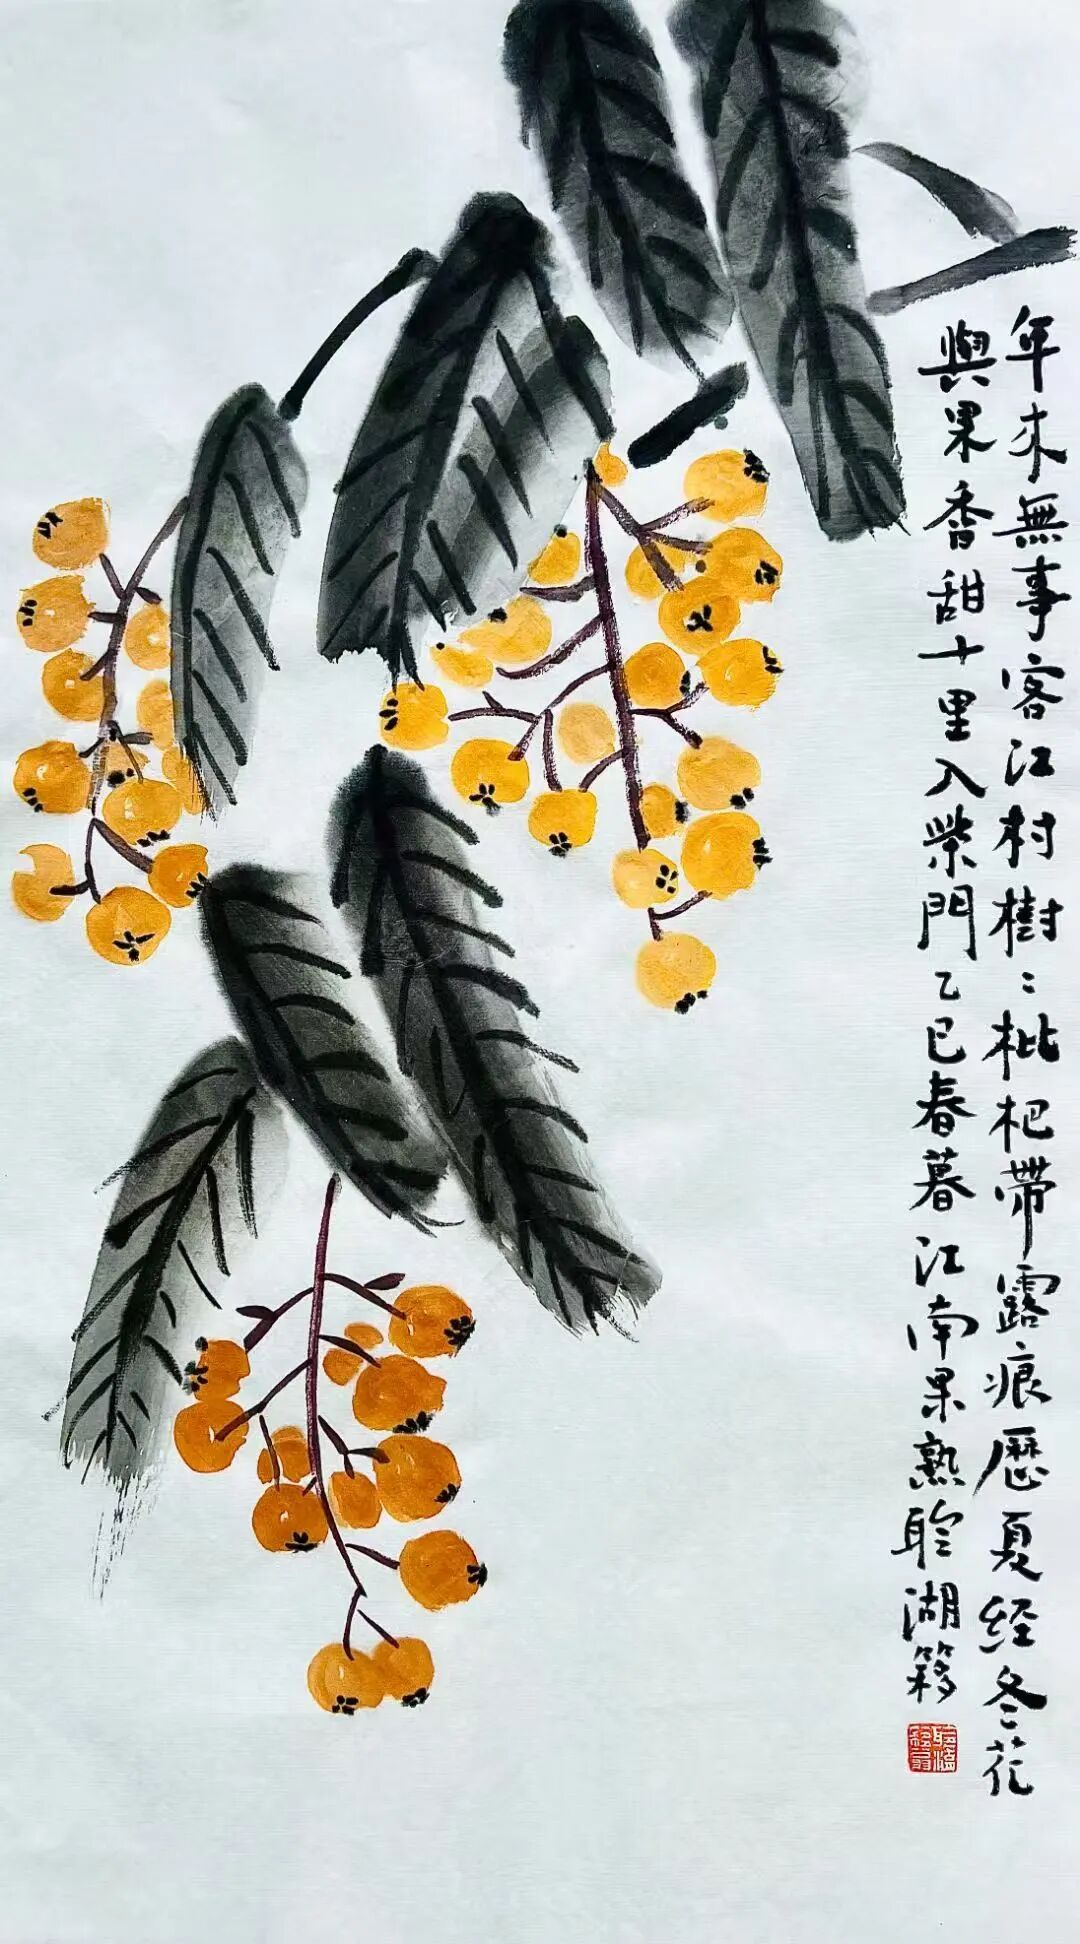 年来無事客江村樹〻枇杷帶露痕歷夏經冬花
與果香甜十里入柴門乙巳春暮江南果熟聆湖簃